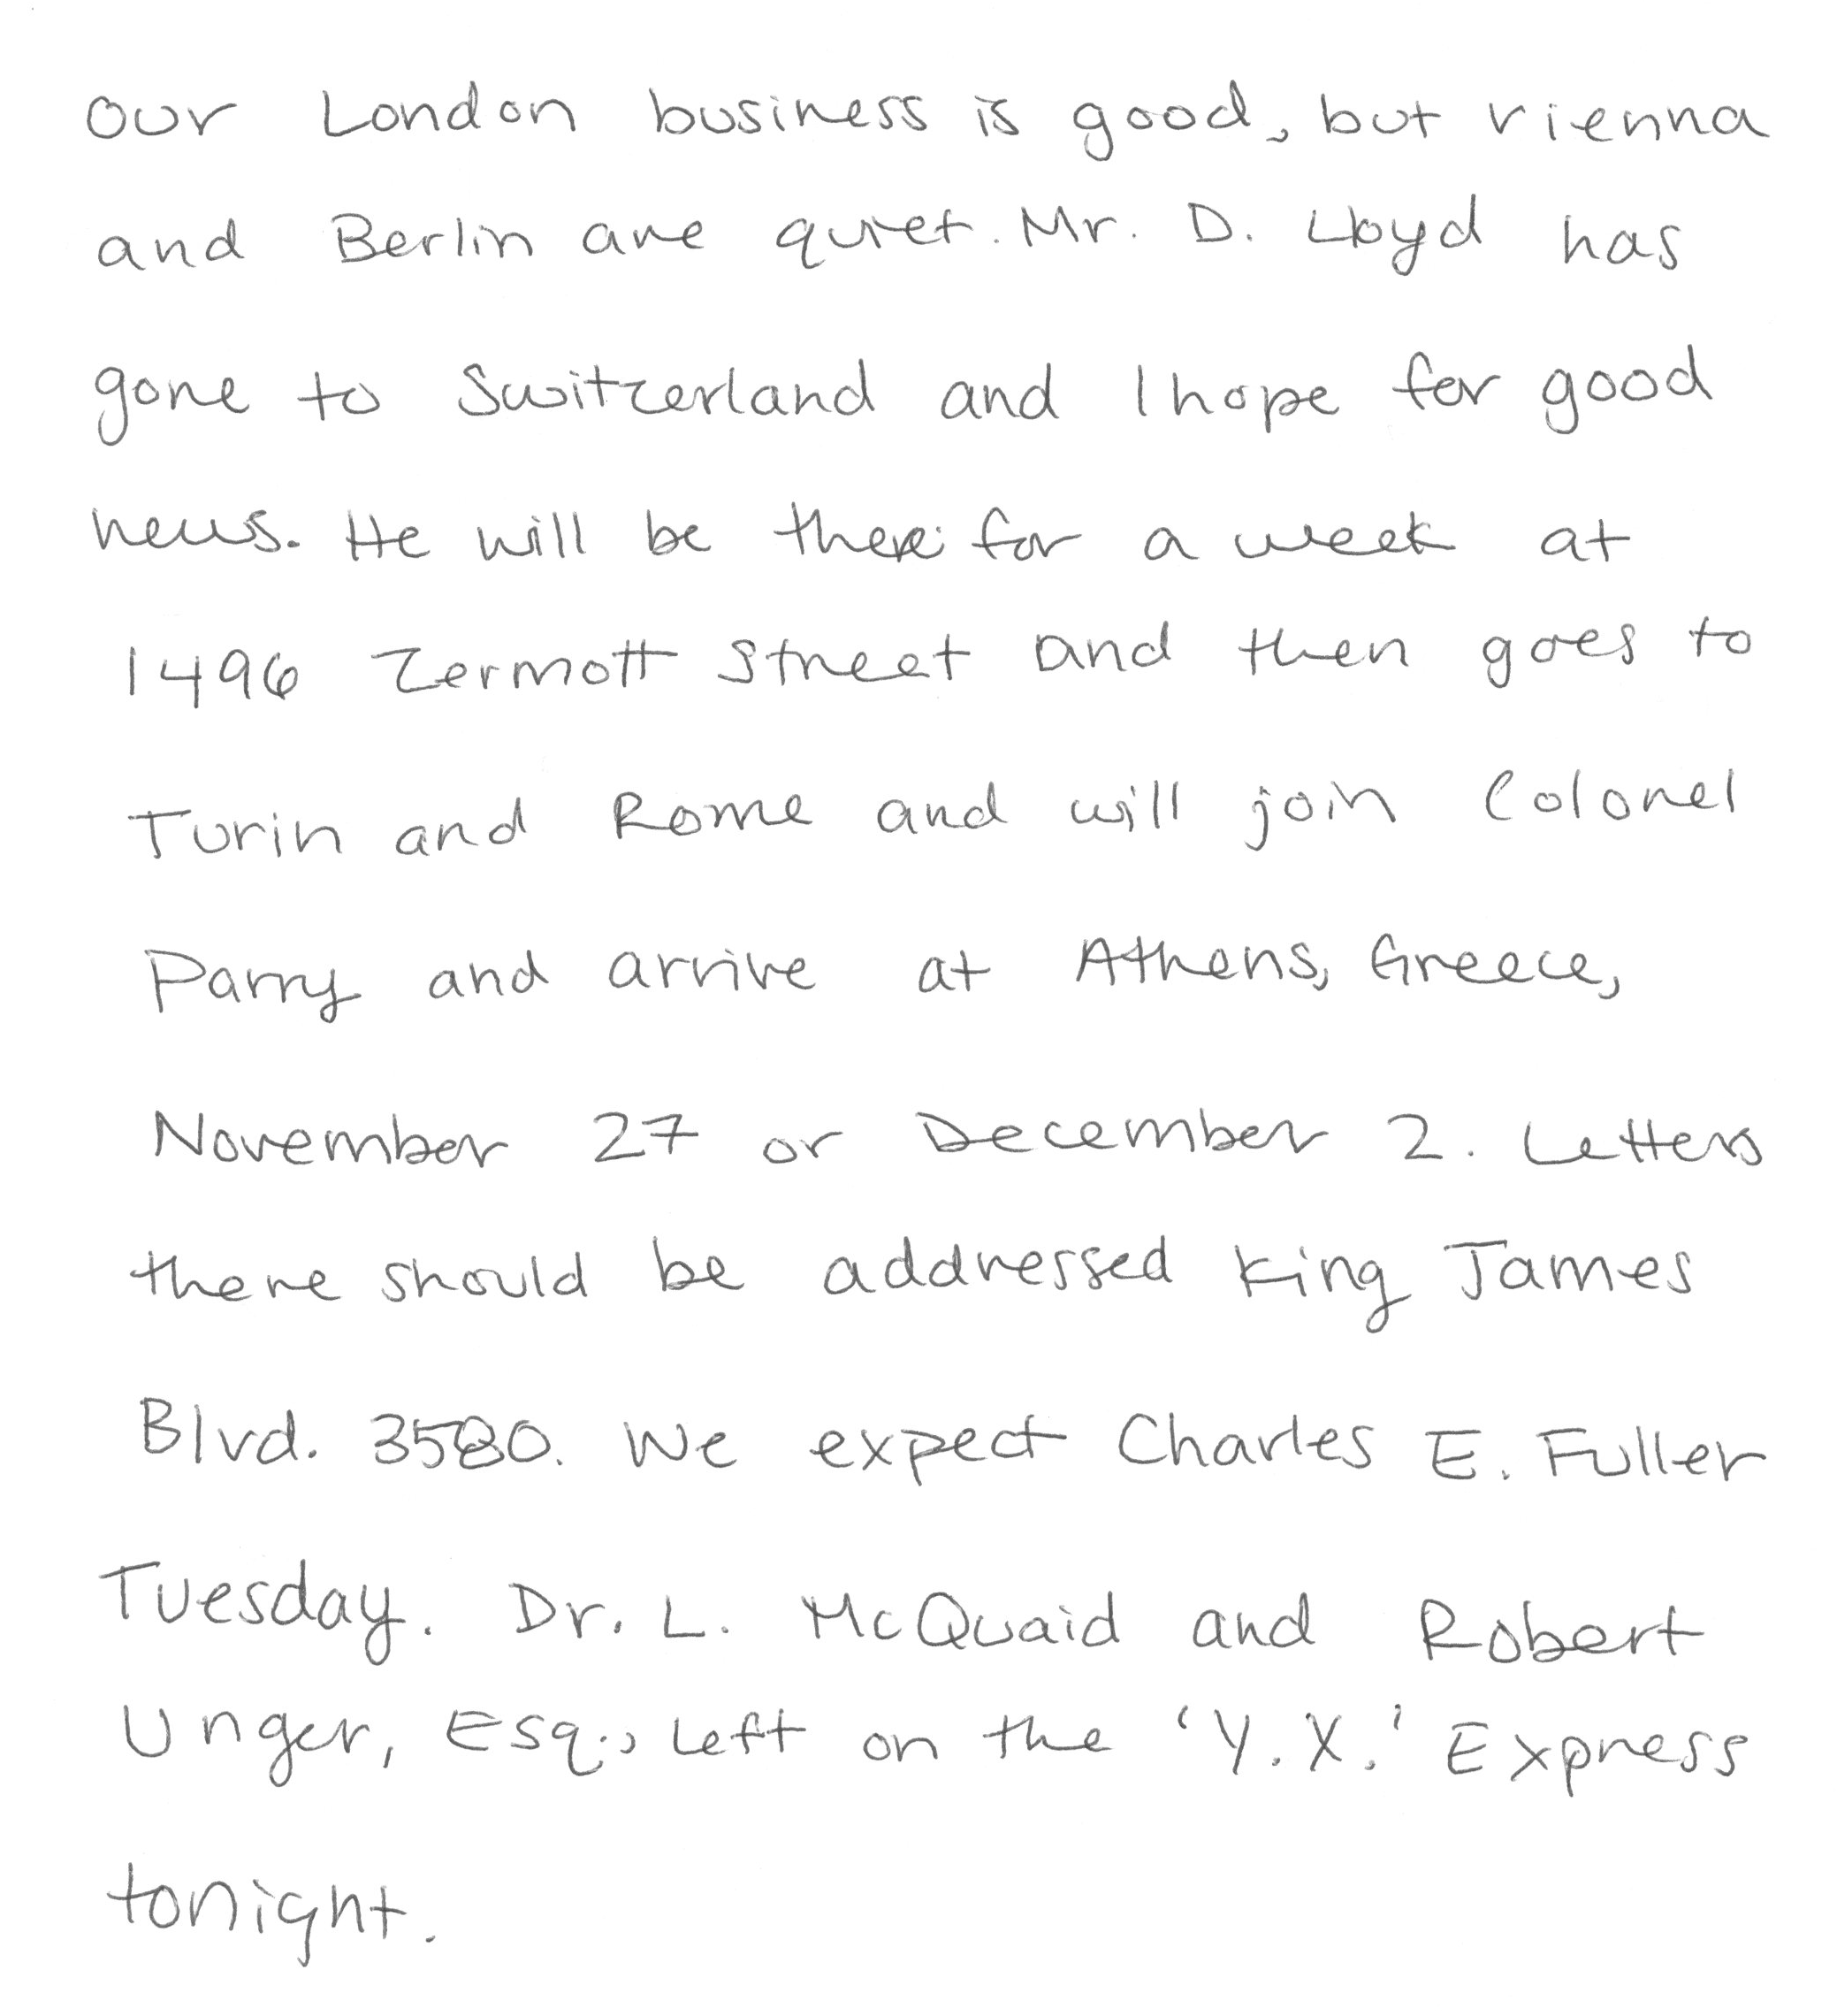 Our London business is good, but Vienna
and Berlin are quiet. Mr. D. Lloyd has
gone to Switzerland and I hope for good
news. He will be there for a week at
1496 Zermott Street and then goes to
Turin and Rome and will join Colonel
Parry and arrive at Athens, Greece,
November 27 or December 2. Letters
there should be addressed King James
Blvd. 3580. We expect Charles E. Fuller
Tuesday. Dr. L. McQuaid and Robert
Unger, Esq., Left on the 'Y.X.' Express
tonight.